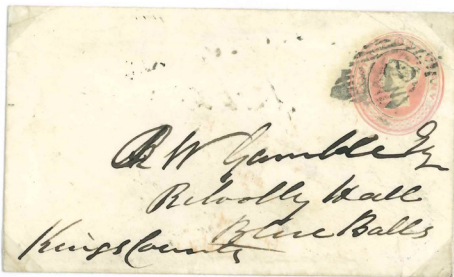 R W Gamble Esq
Kilooly Hall
Blue Balls
Kings County